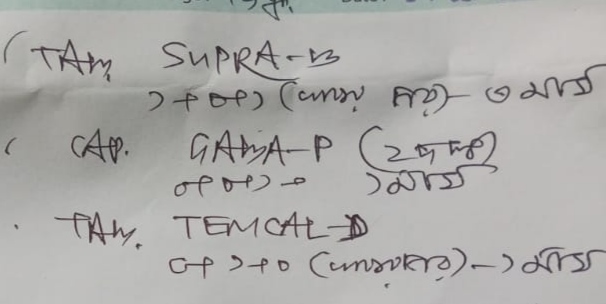 TAB. SUPRA-B
১+০+১ (খাবার পর)- ৩ মাস
CAP. GABA-P
০+০+১ - ১ মাস
TAB. TEMCAL-D
০+১+০ (খাবার পর) - ১ মাস